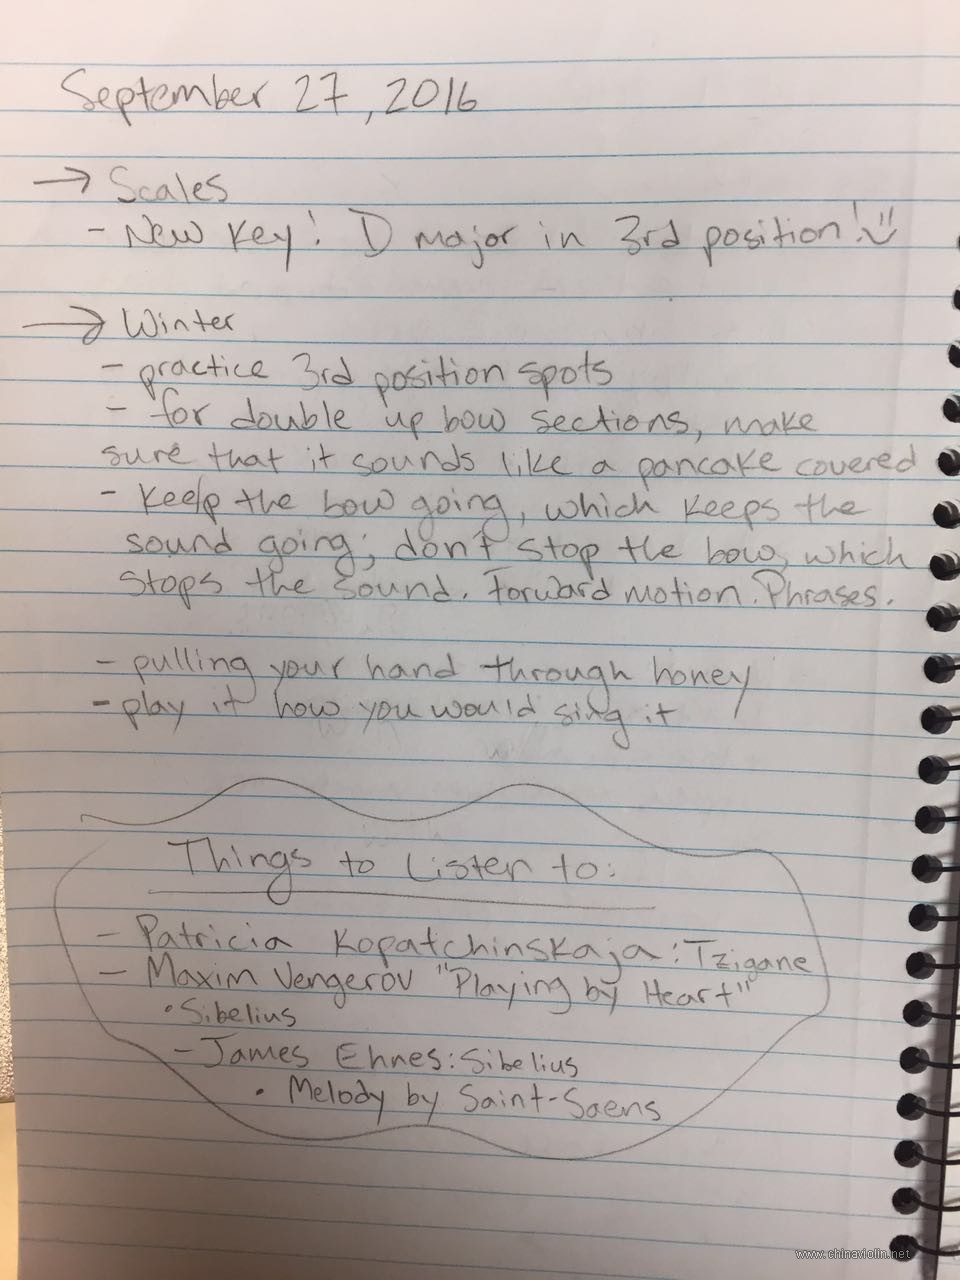 September 27, 2016
→ Scales
- New Key! D major in 3rd position!
→ Winter
- practice 3rd position spots
- for double up bow sections, make
sure that it sounds like a pancake covered
- keep the bow going, which keeps the
sound going; don't stop the bow, which
stops the sound. Forward motion. Phrases.
- pulling your hand through honey
- play it how you would sing it
Things to Listen to:
- Patricia Kopatchinskaja: Tzigane
- Maxim Vengerov "Playing by Heart"
• Sibelius
- James Ehnes: Sibelius
• Melody by Saint-Saens
www.chinaviolin.net